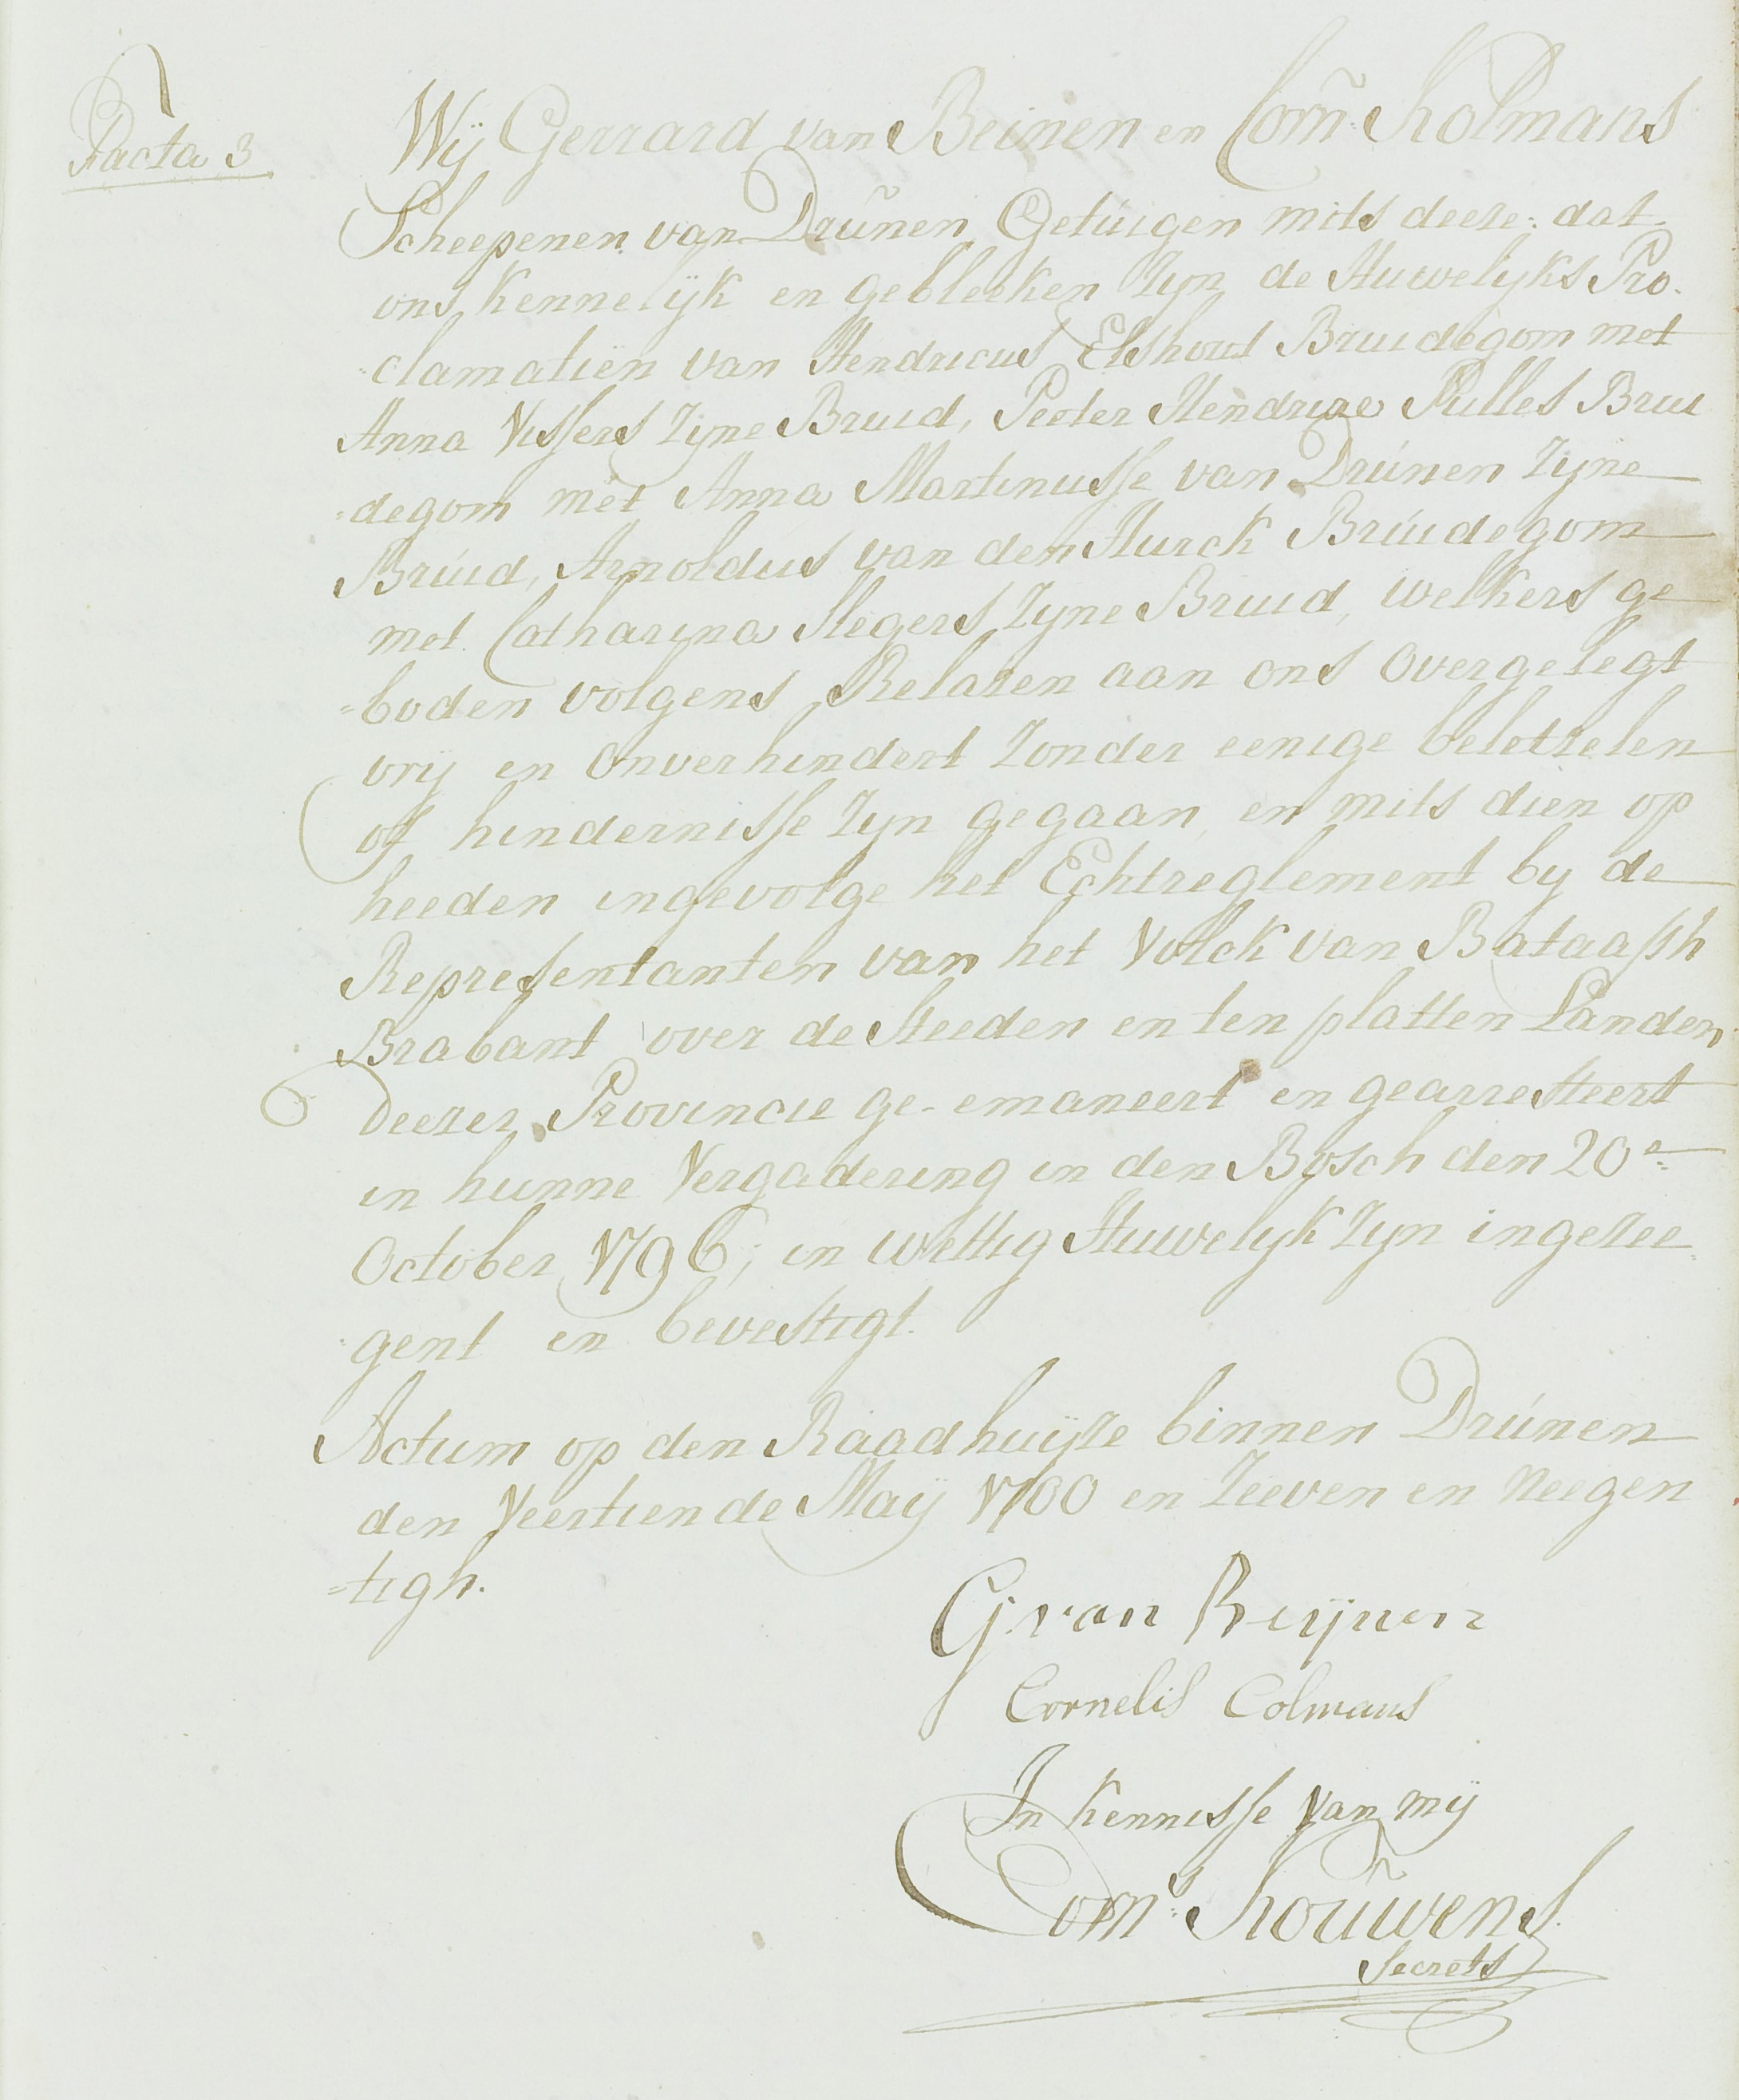 Facta 3
Wij Gerrard van Beinen en Corn: Kolmans
Scheepenen van Drunen Getuigen mits deeze: dat
ons kennelijk en gebleeken zyn de Huwelyks Pro-
clamatien van Hendricus Elshout Bruidegom met
Anna Vissers zijne Bruid, Peeter Hendrixe Pulles Brui
=degom met Anna Martinusse van Drunen zijne
Bruid, Arnoldus van den Hurck Bruidegom
met Catharina Slegers zyne Bruid, welkers ge
=boden volgens Relazen aan ons overgelegt
vrij en onverhindert zonder eenige beletzelen
of hindernisse zyn gegaan, en mits dien op
heeden ingevolge het Echtreglement by de
Representanten van het Volck van Bataafsh
Brabant over de Steeden en ten platten Landen
deezer Provincie ge-emaneert en gearresteert
in hunne Vergadering in den Bosch den 20e
October 1796, in wettig Huwelyk zyn ingezee
gent en bevestigt.
Actum op den Raadhuijze binnen Drunen
den Veertiende Maij 1700 en Zeeven en Neegen
=tigh.
G van Beijnen
Cornelis Colmans
In kennisse van mij
Corns: Kouwens
Secrets